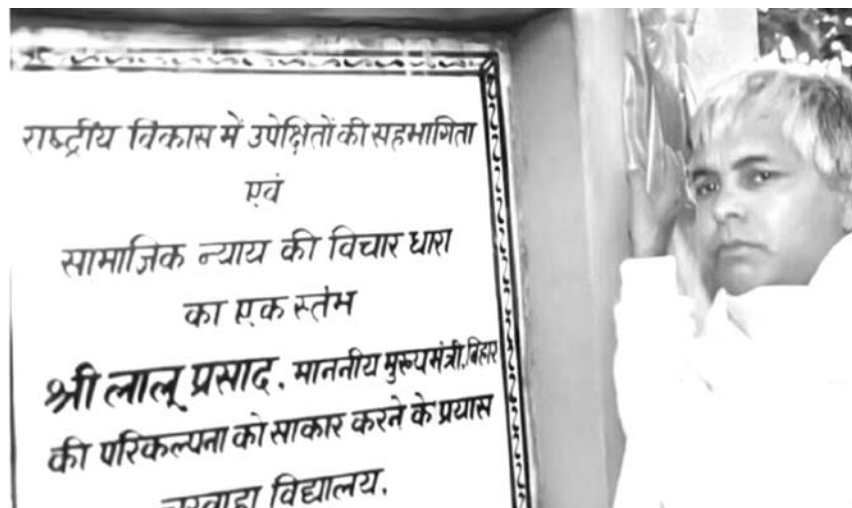 राष्ट्रीय विकास में उपेक्षितों की सहभागिता
एवं
सामाजिक न्याय की विचार धारा
का एक स्तंभ
श्री लालू प्रसाद, माननीय मुख्यमंत्री, बिहार
की परिकल्पना को साकार करने के प्रयास
चरवाहा विद्यालय,